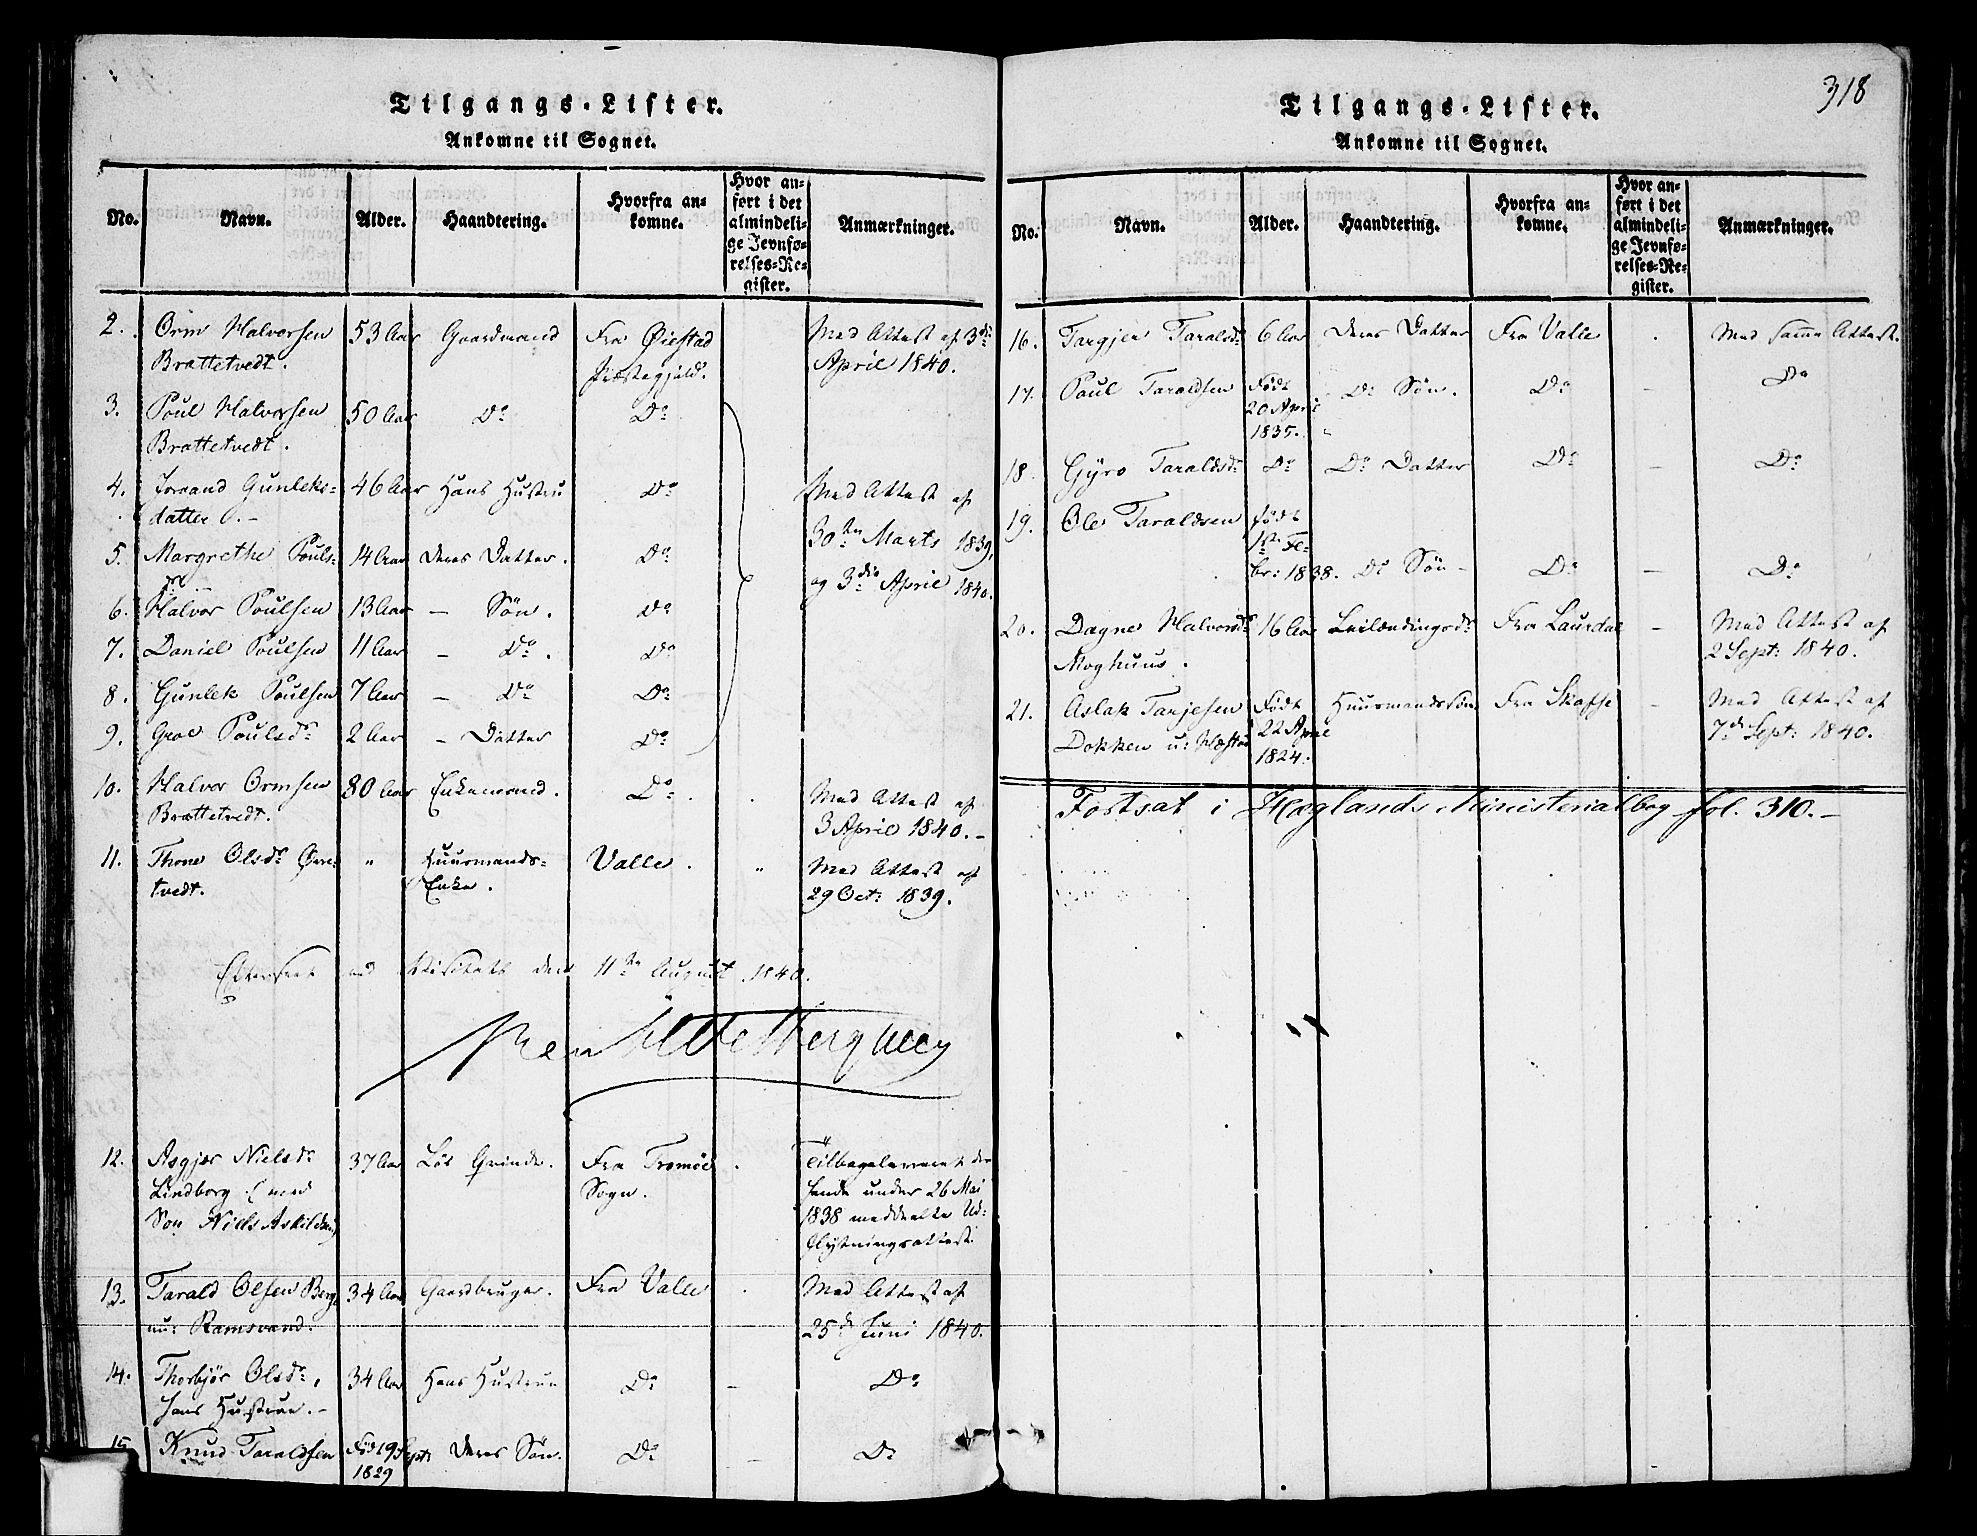 Tilgangs-Lister.
Ankomne til Sognet.
No. Navn. Alder. Haandtering. Hvorfra ankomne. Hvor anført i det almindelige Jevnførelses-Register. Anmærkninger.
2. Orm Halvorsen 53 Aar Gaardmand Fra Øiestad Med Attest af 3die
Brattetvedt. Præstegjeld. April 1840.
3. Poul Halvorsen 50 Aar Do Do
Brattetvedt.
4. Joraand Gunleks- 46 Aar Hans Hustru Do Med Attest af
datter.- 30te Marts 1839,
5. Margrethe Pouls- 14 Aar Deres Datter. Do og 3die April 1840.
6. Halvor Poulsen 13 Aar - Søn. Do
7. Daniel Poulsen 11 Aar - Do. Do
8. Gunlek Poulsen 7 Aar - Do Do
9. Groe Poulsdr 2 Aar - Datter Do
10. Halvor Ormsen 80 Aar Enkemand. Do Med Attest af
Brattetvedt. 3 April 1840.-
11. Thone Olsdr Øvre- " Huusmands- Valle. " Med Attest af
tvedt. Enke. 29 Oct: 1839.
Efterseet ved Visitats den 11te August 1840.
12. Asgjær Nielsdr 37 Aar Løs Qvinde. Fra Tromøe Tilbageleveret den
Lindborg (med Sogn. hende under 26 Mai
Søn Niels Askildsen) 1838 meddeelte Ud-
flytningsattest.
13. Tarald Olsen Berg 34 Aar Gaardbruger. Fra Valle Med Attest af
nu: Ramsvand. 25de Juni 1840.
14. Thorbjør Olsdr, 34 Aar Hans Hustrue Do - Do
hans Hustrue.-
15 Knud Taraldsen Født 9 Sept: Deres Søn. Do - Do
1829
318
Tilgangs-Lister.
Ankomne til Sognet.
No. Navn. Alder. Haandtering. Hvorfra ankomne. Hvor anført i det almindelige Jevnførelses-Register. Anmærkninger.
16. Targjer Taralsdr 6 Aar Deres Datter Fra Valle Med samme Attest.
17. Poul Taraldsen Født Do Søn. Do - Do
20 April
1835.
18. Gyro Taraldsdr Do Do Datter Do - Do
19. Ole Taraldsen født
1ste Fe-
br: 1838. Do Søn - Do - Do
20. Dagne Halvorsdr 16 Aar Leilændingsdr Fra Laurdal - Med Attest af
Moghuus. 2 Sept: 1840.
21. Aslak Tarjesen Født Huusmandssøn Fra Skafse - Med Attest af
Dokken u: 22 April 7de Sept: 1840.
1824.
Fortsat i Høglands Ministerialbog fol. 310.-